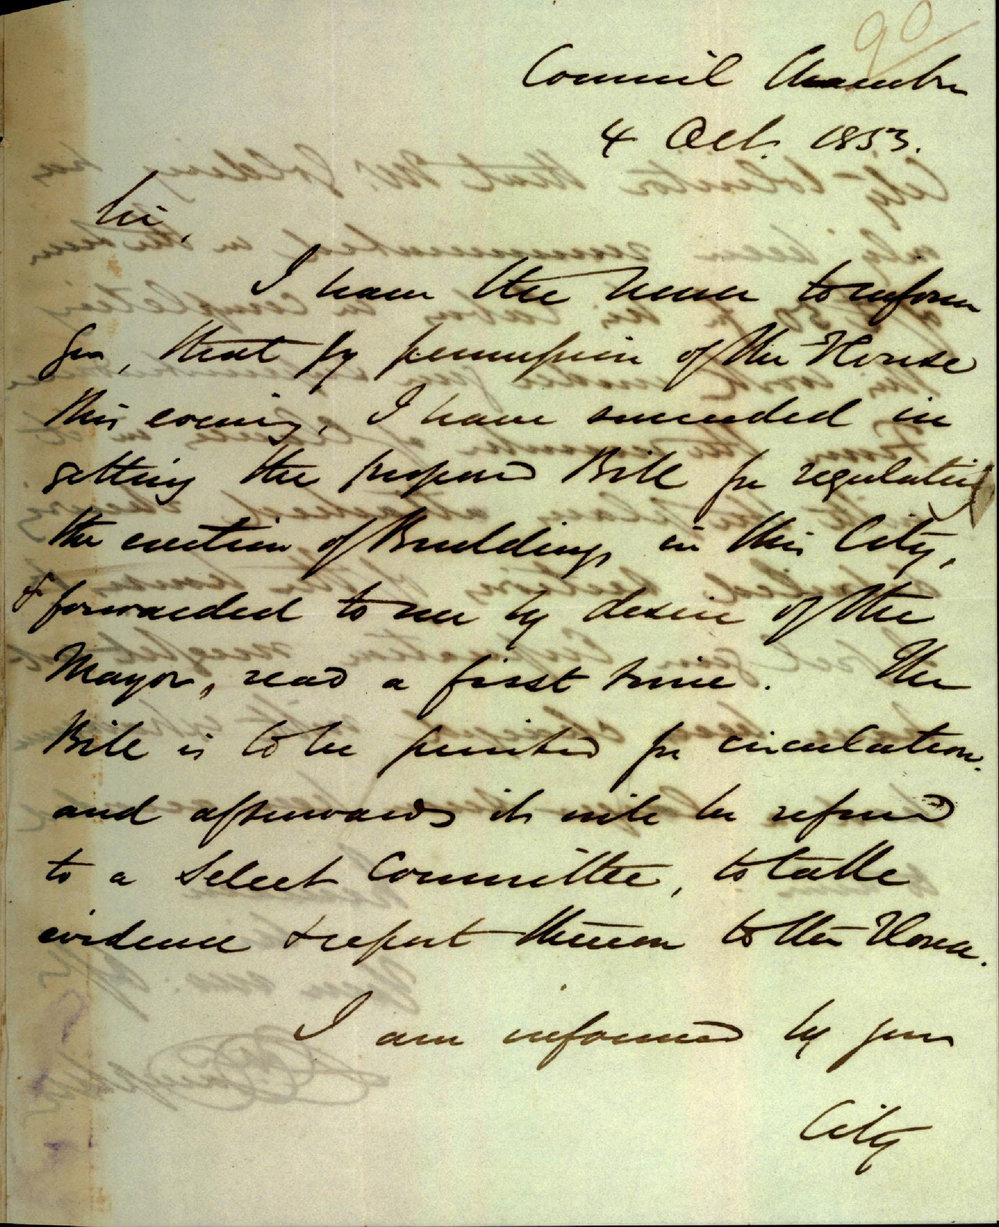 90
Council Chamber
4 Oct. 1853.
Sir,
I have the honor to inform
you, that by permission of the House
this evening, I have succeeded in
getting the proposed Bill for regulating
the erection of Buildings in this City,
& forwarded to me by desire of the
Mayor, read a first time. The
Bill is to be printed for circulation.
and afterwards it will be referred
to a Select Committee, to take
evidence & report thereon to the House.
I am informed by your
City